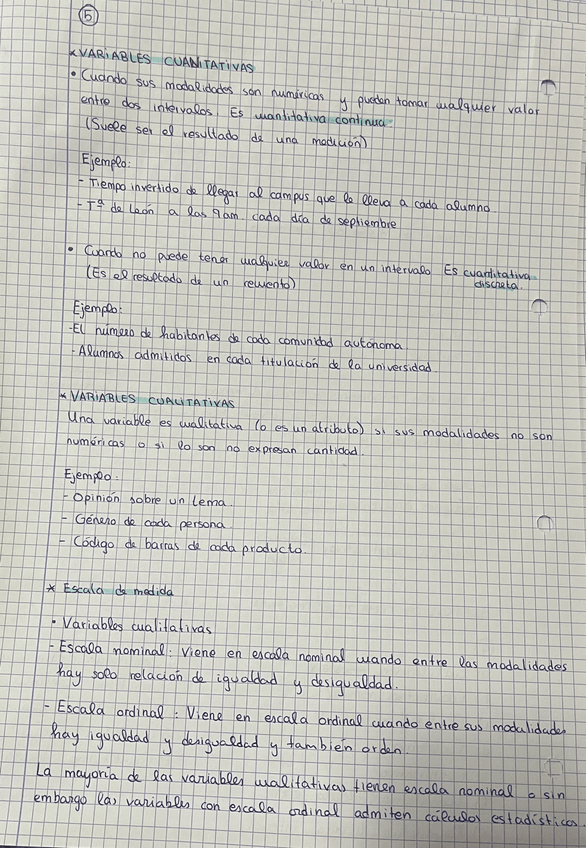 5
* VARIABLES CUANITATIVAS
• Cuando sus modalidades son numéricas y pueden tomar cualquier valor
entre dos intervalos. Es cuantitativa continua
(Suele ser el resultado de una medición)
Ejemplo:
- Tiempo invertido de llegar al campus que le lleva a cada alumno
- Tª de León a las 9am. cada día de septiembre
• Cuando no puede tener cualquier valor en un intervalo Es cuantitativa
discreta.
(Es el resultado de un recuento)
Ejemplo:
- El número de habitantes de cada comunidad autónoma.
- Alumnos admitidos en cada titulación de la universidad.
* VARIABLES CUALITATIVAS
Una variable es cualitativa (o es un atributo) si sus modalidades no son
numéricas o si lo son no expresan cantidad.
Ejemplo.
- Opinión sobre un tema.
- Género de cada persona
- Código de barras de cada producto.
* Escala de medida
• Variables cualitativas
- Escala nominal: Viene en escala nominal cuando entre las modalidades
hay solo relación de igualdad y desigualdad.
- Escala ordinal: Viene en escala ordinal cuando entre sus modalidades
hay igualdad y desigualdad y también orden.
La mayoría de las variables cualitativas tienen escala nominal o sin
embargo las variables con escala ordinal admiten cálculos estadísticos